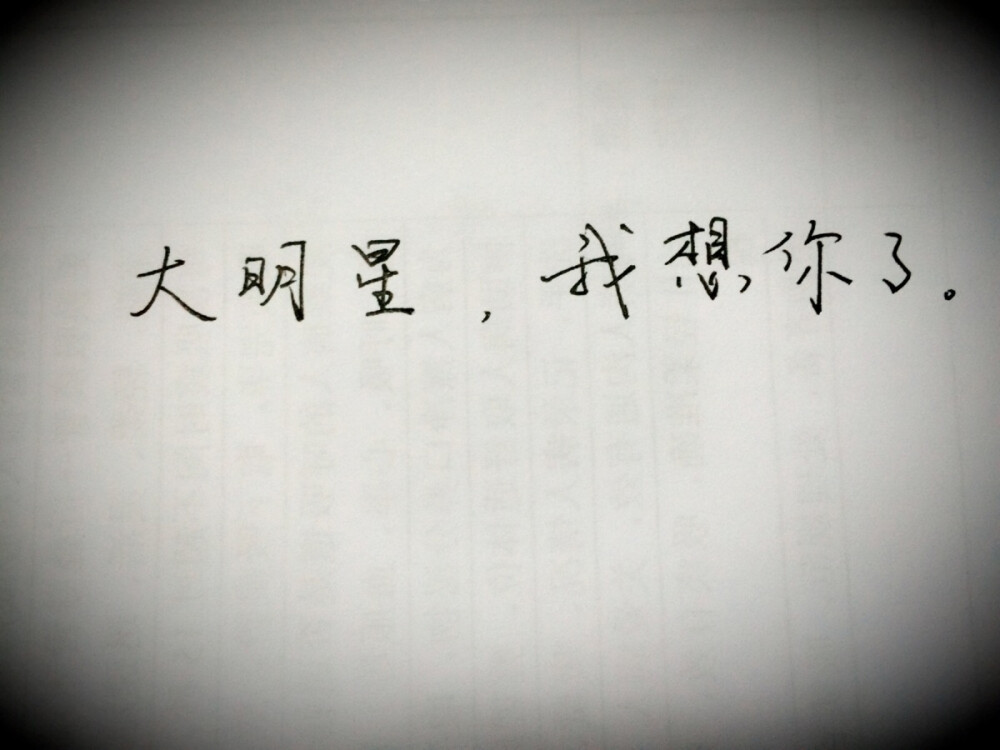 大明星，我想你了。